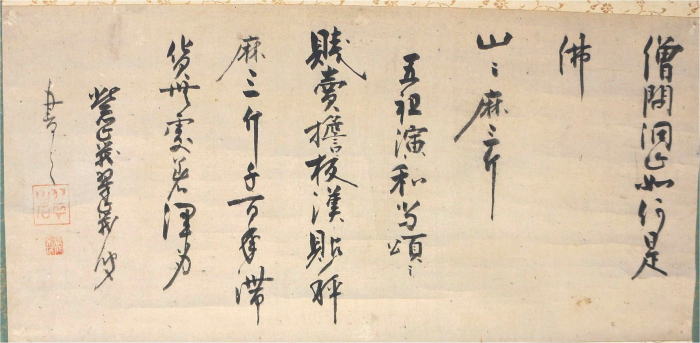 僧問洞山如何是
佛
山〻麻三斤
五祖演和尚頌〻
賤賣擔板漢貼秤
麻三斤千百年滯
貨無處著渾身
書之